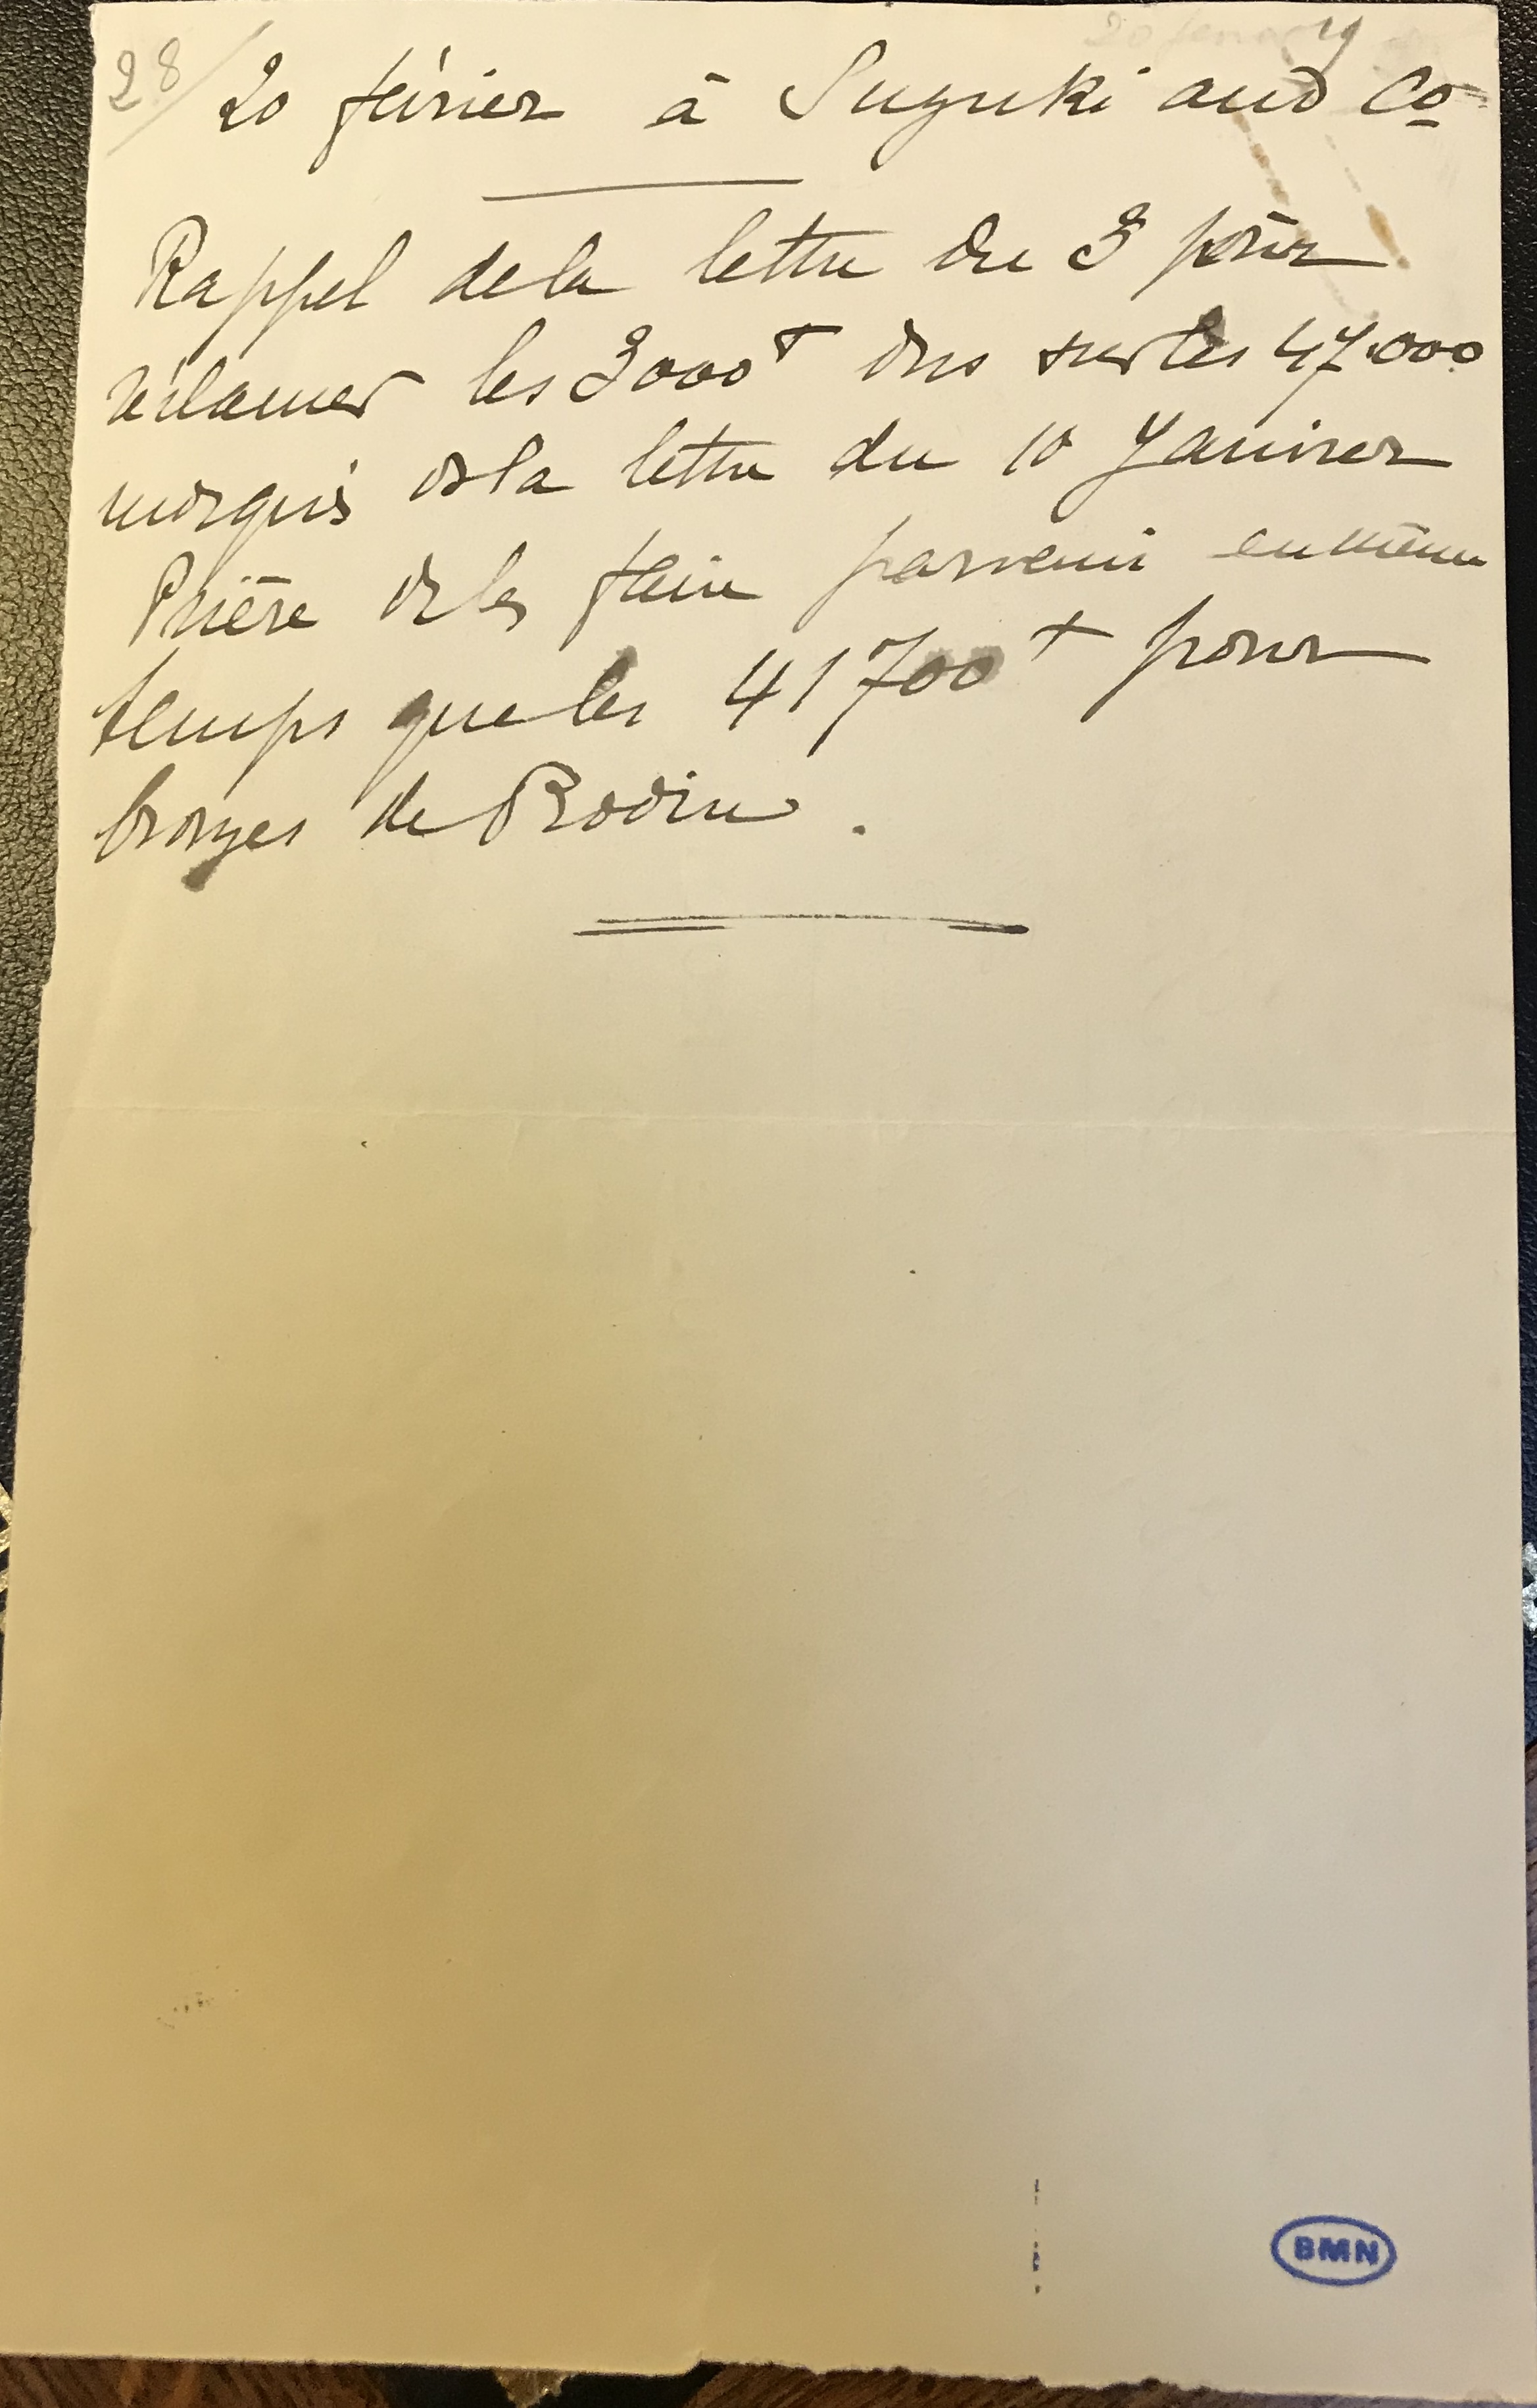 28/
20 février à Suzuki and Co
Rappel de la lettre du 3 pour
réclamer les 3000 f dus sur les 47.000
de la lettre du 10 Janvier
Prière de les faire parvenir en même
temps que les 41700 f pour
bronzes de Rodin.
BMN